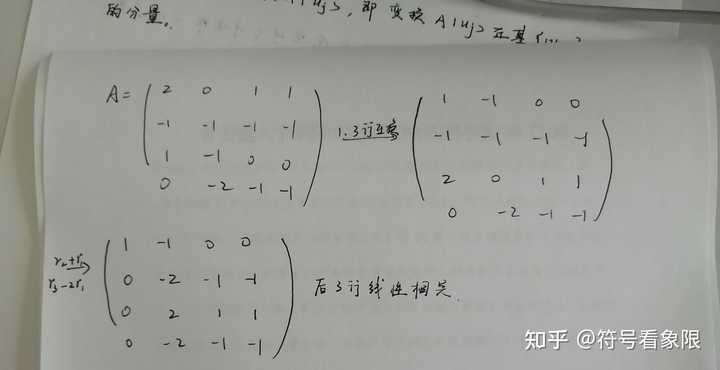 的分量。 即 变换 A|uj> 在基
A= ( 2 0 1 1
-1 -1 -1 -1
1 -1 0 0
0 -2 -1 -1 )
1.3行互换
( 1 -1 0 0
-1 -1 -1 -1
2 0 1 1
0 -2 -1 -1 )
r₂+r₁
r₃-2r₁
( 1 -1 0 0
0 -2 -1 -1
0 2 1 1
0 -2 -1 -1 )
后3行线性相关.
知乎 @符号看象限